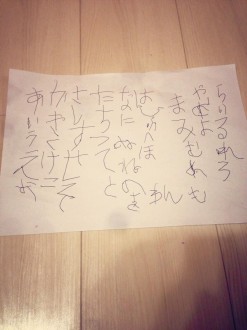 らりるれろ
やゆよ
まみむめも
わん
はひふへほ
なにぬねのを
たちつてと
さしすせそ
かきくけこ
あいうえお